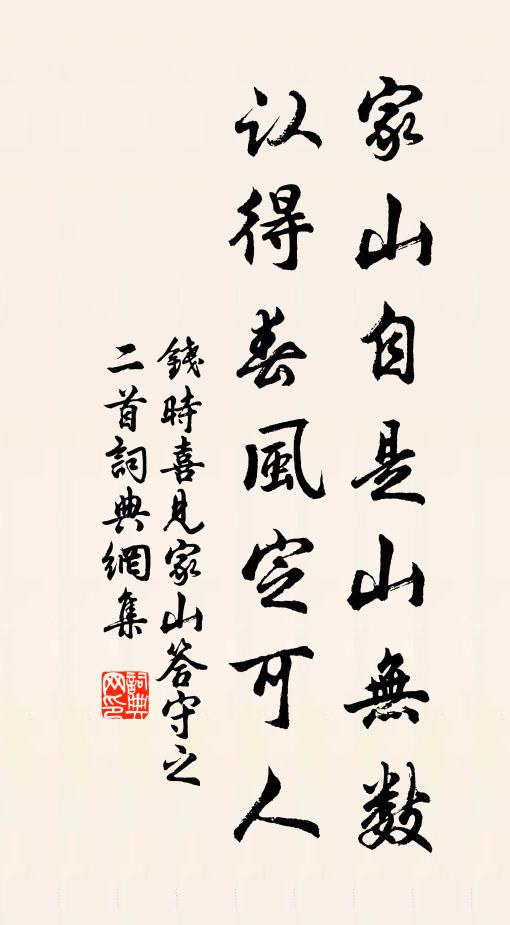 家山自是山無數
认得春風定可人
錢時喜見家山答守之
二首詞典網集
詞典
网印